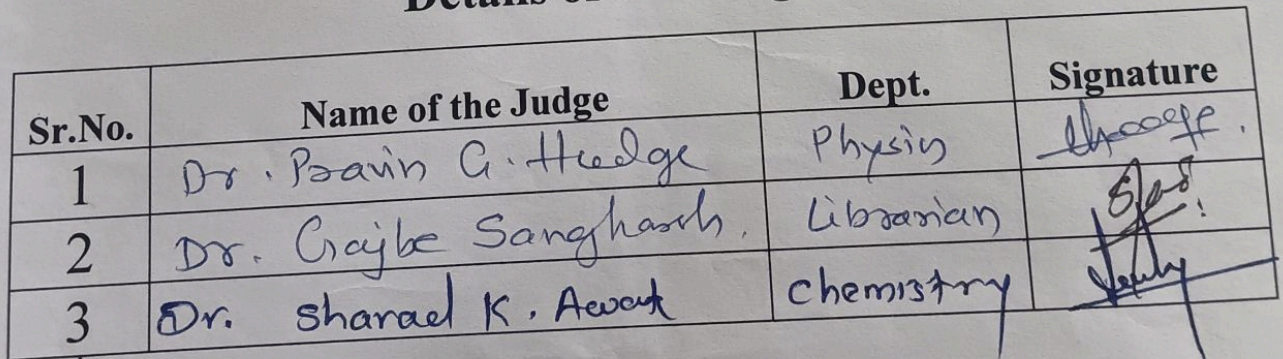 Details of
Sr.No. Name of the Judge Dept. Signature
1 Dr. Pravin G. Hudge Physics
2 Dr. Gajbe Sangharsh. Librarian
3 Dr. Sharad K. Awate Chemistry